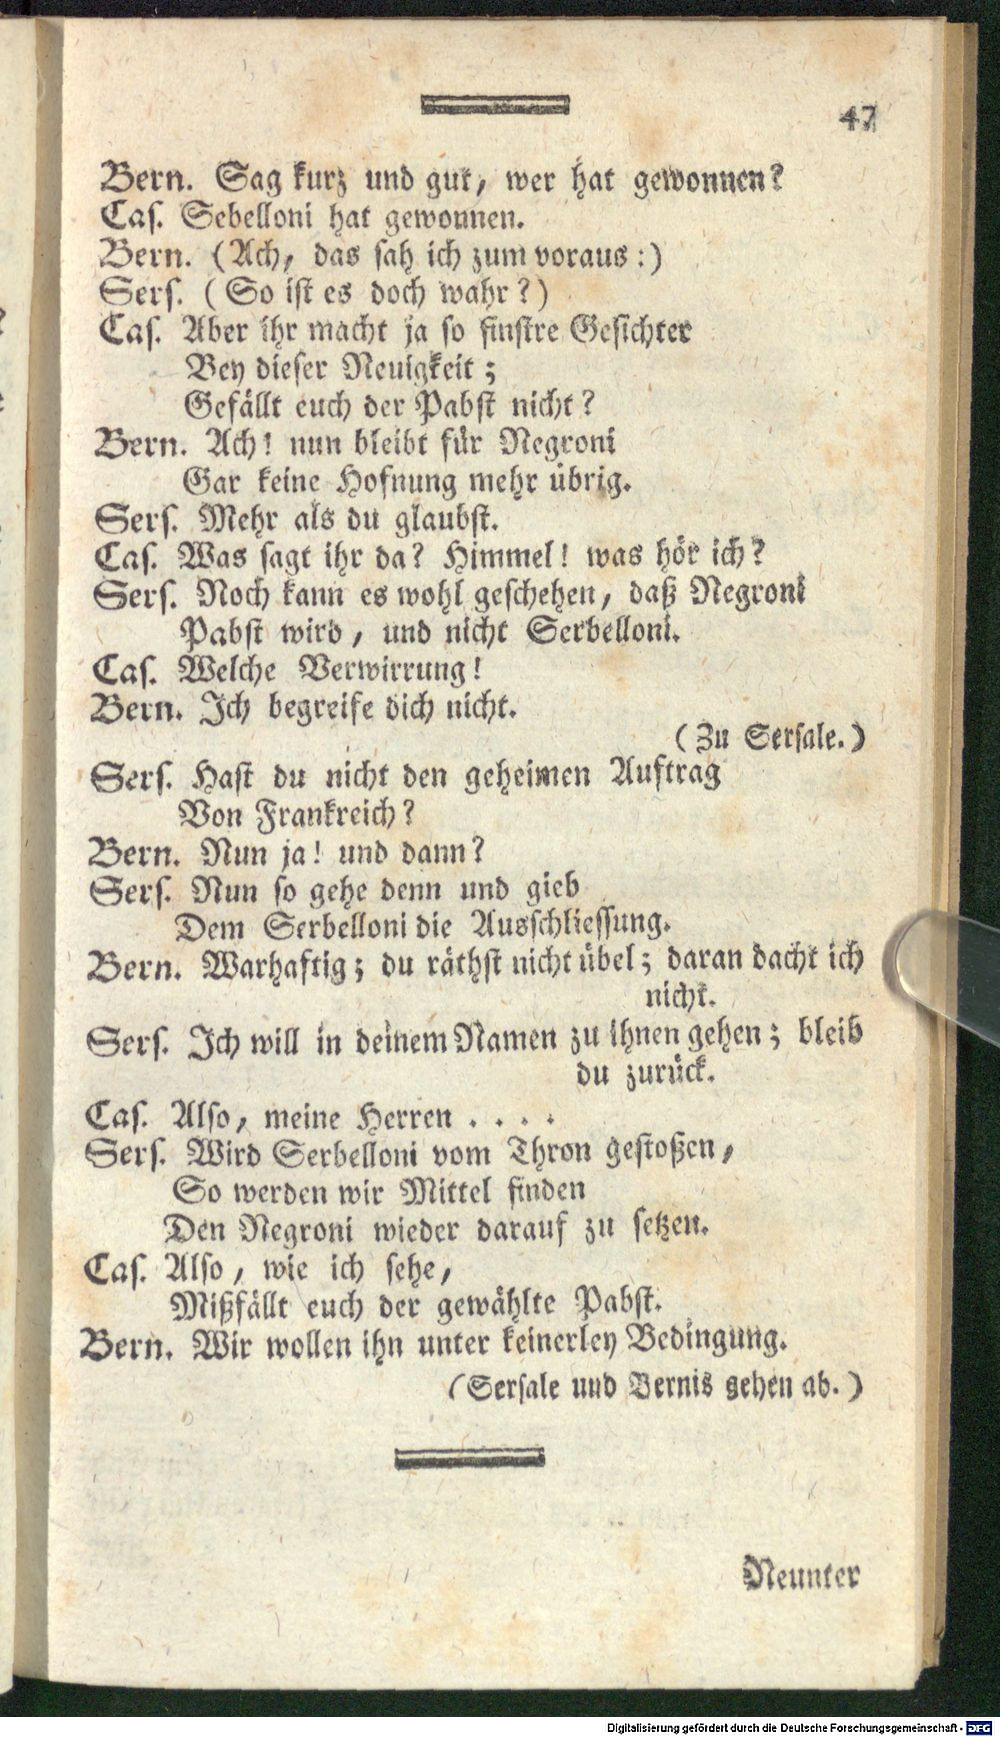 47
Bern. Sag kurz und gut, wer hat gewonnen?
Cas. Sebelloni hat gewonnen.
Bern. (Ach, das sah ich zum voraus:)
Sers. (So ist es doch wahr?)
Cas. Aber ihr macht ja so finstre Gesichter
Bey dieser Neuigkeit;
Gefällt euch der Pabst nicht?
Bern. Ach! nun bleibt für Negroni
Gar keine Hofnung mehr übrig.
Sers. Mehr als du glaubst.
Cas. Was sagt ihr da? Himmel! was hör ich?
Sers. Noch kann es wohl geschehen, daß Negroni
Pabst wird, und nicht Serbelloni.
Cas. Welche Verwirrung!
Bern. Ich begreife dich nicht.
(Zu Sersale.)
Sers. Hast du nicht den geheimen Auftrag
Von Frankreich?
Bern. Nun ja! und dann?
Sers. Nun so gehe denn und gieb
Dem Serbelloni die Ausschliessung.
Bern. Warhaftig; du räthst nicht übel; daran dacht ich
nicht.
Sers. Ich will in deinem Namen zu ihnen gehen; bleib
du zurück.
Cas. Also, meine Herren . . . .
Sers. Wird Serbelloni vom Thron gestoßen,
So werden wir Mittel finden
Den Negroni wieder darauf zu setzen.
Cas. Also, wie ich sehe,
Mißfällt euch der gewählte Pabst.
Bern. Wir wollen ihn unter keinerley Bedingung.
(Sersale und Bernis gehen ab.)
Neunter
Digitalisierung gefördert durch die Deutsche Forschungsgemeinschaft - DFG